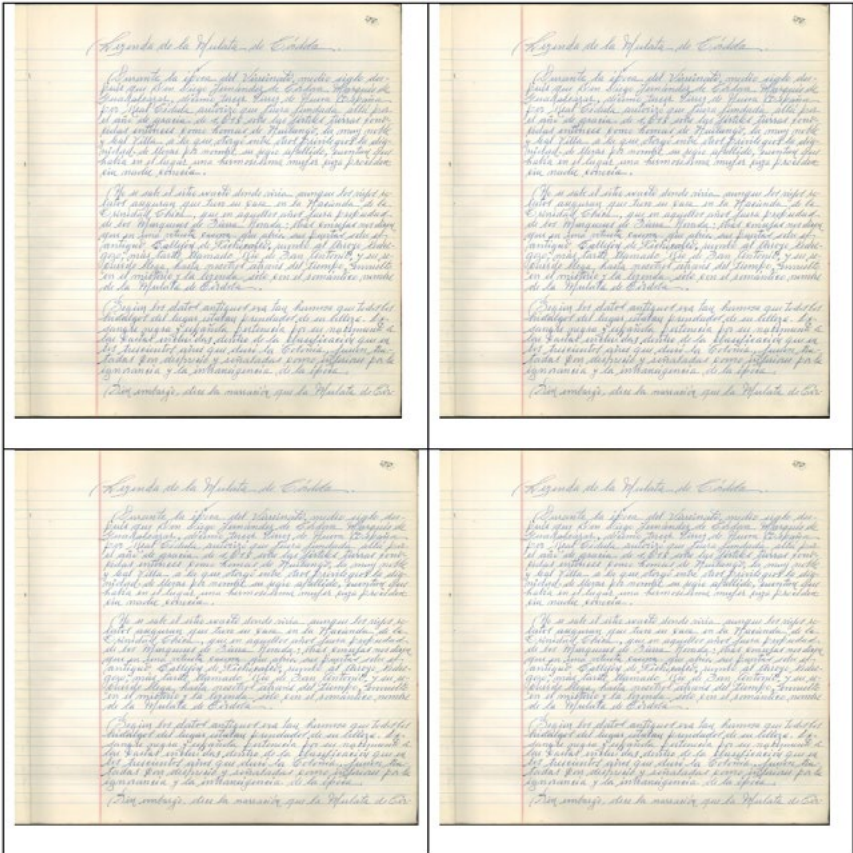 Leyenda de la Mulata de Córdoba.
Durante la época del Virreinato, medio siglo des-
pués que Don Diego Fernández de Córdova Marqués de
Guadalcazar, décimo tercer Virrey de Nueva España
por Real Cédula autorizó que fuera fundada allá por
el año de gracia de 1,618 sobre las fértiles tierras cono-
cidas entonces como Lomas de Huilango, la muy noble
y leal Villa a la que otorgó entre otros privilegios la dig-
nidad de llevar por nombre su regio apellido, cuentan que
había en el lugar una hermosísima mujer cuya
nadie conocía.
No se sabe el sitio exacto donde vivía aunque los viejos re-
latos aseguran que tuvo su casa en la Hacienda de la
Trinidad Chica, que en aquellos años fuera propiedad
de los Marqueses de Sierra Nevada; otras nos dicen
que en una vetusta casona que abría sus puertas sobre el
antiguo Callejón de junto al Arroyo
más tarde llamado Río de San Antonio, y su re-
cuerdo llega hasta nosotros através del tiempo, envuelto
en el misterio y la leyenda sólo con el romántico nombre
de la Mulata de Córdoba.
Según los datos antiguos era tan hermosa que todos los
hidalgos del lugar estaban prendados de su belleza. De
sangre negra y española pertenecía por su nacimiento a
las castas incluidas dentro de la clasificación que en
los trescientos años que duró la Colonia, fueron tra-
tadas con desprecio y señaladas como inferiores por la
ignorancia y la intransigencia de la época.
Sin embargo, dice la narración que la Mulata de Cór-
Leyenda de la Mulata de Córdoba.
Durante la época del Virreinato, medio siglo des-
pués que Don Diego Fernández de Córdova Marqués de
Guadalcazar, décimo tercer Virrey de Nueva España
por Real Cédula autorizó que fuera fundada allá por
el año de gracia de 1,618 sobre las fértiles tierras cono-
cidas entonces como Lomas de Huilango, la muy noble
y leal Villa a la que otorgó entre otros privilegios la dig-
nidad de llevar por nombre su regio apellido, cuentan que
había en el lugar una hermosísima mujer cuya
nadie conocía.
No se sabe el sitio exacto donde vivía aunque los viejos re-
latos aseguran que tuvo su casa en la Hacienda de la
Trinidad Chica, que en aquellos años fuera propiedad
de los Marqueses de Sierra Nevada; otras nos dicen
que en una vetusta casona que abría sus puertas sobre el
antiguo Callejón de junto al Arroyo
más tarde llamado Río de San Antonio, y su re-
cuerdo llega hasta nosotros através del tiempo, envuelto
en el misterio y la leyenda sólo con el romántico nombre
de la Mulata de Córdoba.
Según los datos antiguos era tan hermosa que todos los
hidalgos del lugar estaban prendados de su belleza. De
sangre negra y española pertenecía por su nacimiento a
las castas incluidas dentro de la clasificación que en
los trescientos años que duró la Colonia, fueron tra-
tadas con desprecio y señaladas como inferiores por la
ignorancia y la intransigencia de la época.
Sin embargo, dice la narración que la Mulata de Cór-
Leyenda de la Mulata de Córdoba.
Durante la época del Virreinato, medio siglo des-
pués que Don Diego Fernández de Córdova Marqués de
Guadalcazar, décimo tercer Virrey de Nueva España
por Real Cédula autorizó que fuera fundada allá por
el año de gracia de 1,618 sobre las fértiles tierras cono-
cidas entonces como Lomas de Huilango, la muy noble
y leal Villa a la que otorgó entre otros privilegios la dig-
nidad de llevar por nombre su regio apellido, cuentan que
había en el lugar una hermosísima mujer cuya
nadie conocía.
No se sabe el sitio exacto donde vivía aunque los viejos re-
latos aseguran que tuvo su casa en la Hacienda de la
Trinidad Chica, que en aquellos años fuera propiedad
de los Marqueses de Sierra Nevada; otras nos dicen
que en una vetusta casona que abría sus puertas sobre el
antiguo Callejón de junto al Arroyo
más tarde llamado Río de San Antonio, y su re-
cuerdo llega hasta nosotros através del tiempo, envuelto
en el misterio y la leyenda sólo con el romántico nombre
de la Mulata de Córdoba.
Según los datos antiguos era tan hermosa que todos los
hidalgos del lugar estaban prendados de su belleza. De
sangre negra y española pertenecía por su nacimiento a
las castas incluidas dentro de la clasificación que en
los trescientos años que duró la Colonia, fueron tra-
tadas con desprecio y señaladas como inferiores por la
ignorancia y la intransigencia de la época.
Sin embargo, dice la narración que la Mulata de Cór-
Leyenda de la Mulata de Córdoba.
Durante la época del Virreinato, medio siglo des-
pués que Don Diego Fernández de Córdova Marqués de
Guadalcazar, décimo tercer Virrey de Nueva España
por Real Cédula autorizó que fuera fundada allá por
el año de gracia de 1,618 sobre las fértiles tierras cono-
cidas entonces como Lomas de Huilango, la muy noble
y leal Villa a la que otorgó entre otros privilegios la dig-
nidad de llevar por nombre su regio apellido, cuentan que
había en el lugar una hermosísima mujer cuya
nadie conocía.
No se sabe el sitio exacto donde vivía aunque los viejos re-
latos aseguran que tuvo su casa en la Hacienda de la
Trinidad Chica, que en aquellos años fuera propiedad
de los Marqueses de Sierra Nevada; otras nos dicen
que en una vetusta casona que abría sus puertas sobre el
antiguo Callejón de junto al Arroyo
más tarde llamado Río de San Antonio, y su re-
cuerdo llega hasta nosotros através del tiempo, envuelto
en el misterio y la leyenda sólo con el romántico nombre
de la Mulata de Córdoba.
Según los datos antiguos era tan hermosa que todos los
hidalgos del lugar estaban prendados de su belleza. De
sangre negra y española pertenecía por su nacimiento a
las castas incluidas dentro de la clasificación que en
los trescientos años que duró la Colonia, fueron tra-
tadas con desprecio y señaladas como inferiores por la
ignorancia y la intransigencia de la época.
Sin embargo, dice la narración que la Mulata de Cór-